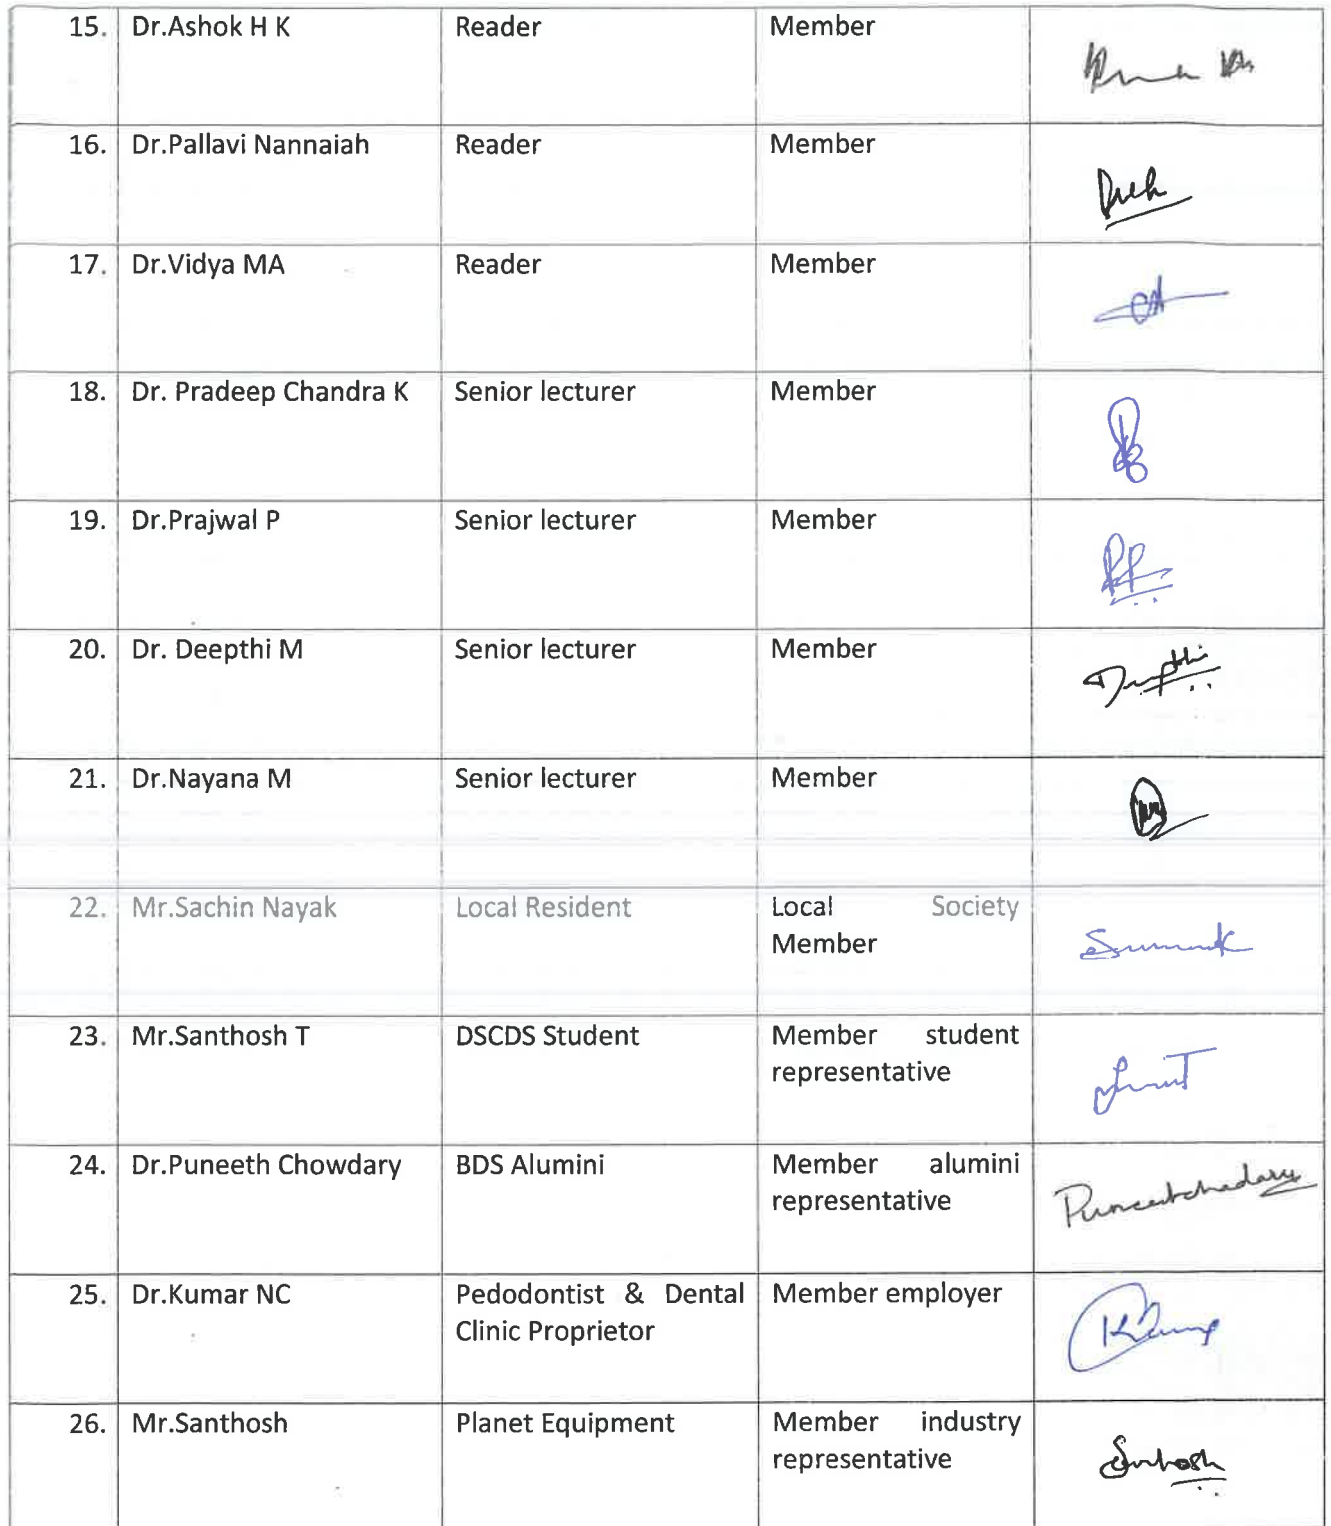 15. Dr.Ashok H K Reader Member
16. Dr.Pallavi Nannaiah Reader Member
17. Dr.Vidya MA Reader Member
18. Dr. Pradeep Chandra K Senior lecturer Member
19. Dr.Prajwal P Senior lecturer Member
20. Dr. Deepthi M Senior lecturer Member
Deepthi
21. Dr.Nayana M Senior lecturer Member
22. Mr.Sachin Nayak Local Resident Local Society
Member
23. Mr.Santhosh T DSCDS Student Member student
representative
24. Dr.Puneeth Chowdary BDS Alumini Member alumini
representative
25. Dr.Kumar NC Pedodontist & Dental Member employer
Clinic Proprietor
26. Mr.Santhosh Planet Equipment Member industry
representative